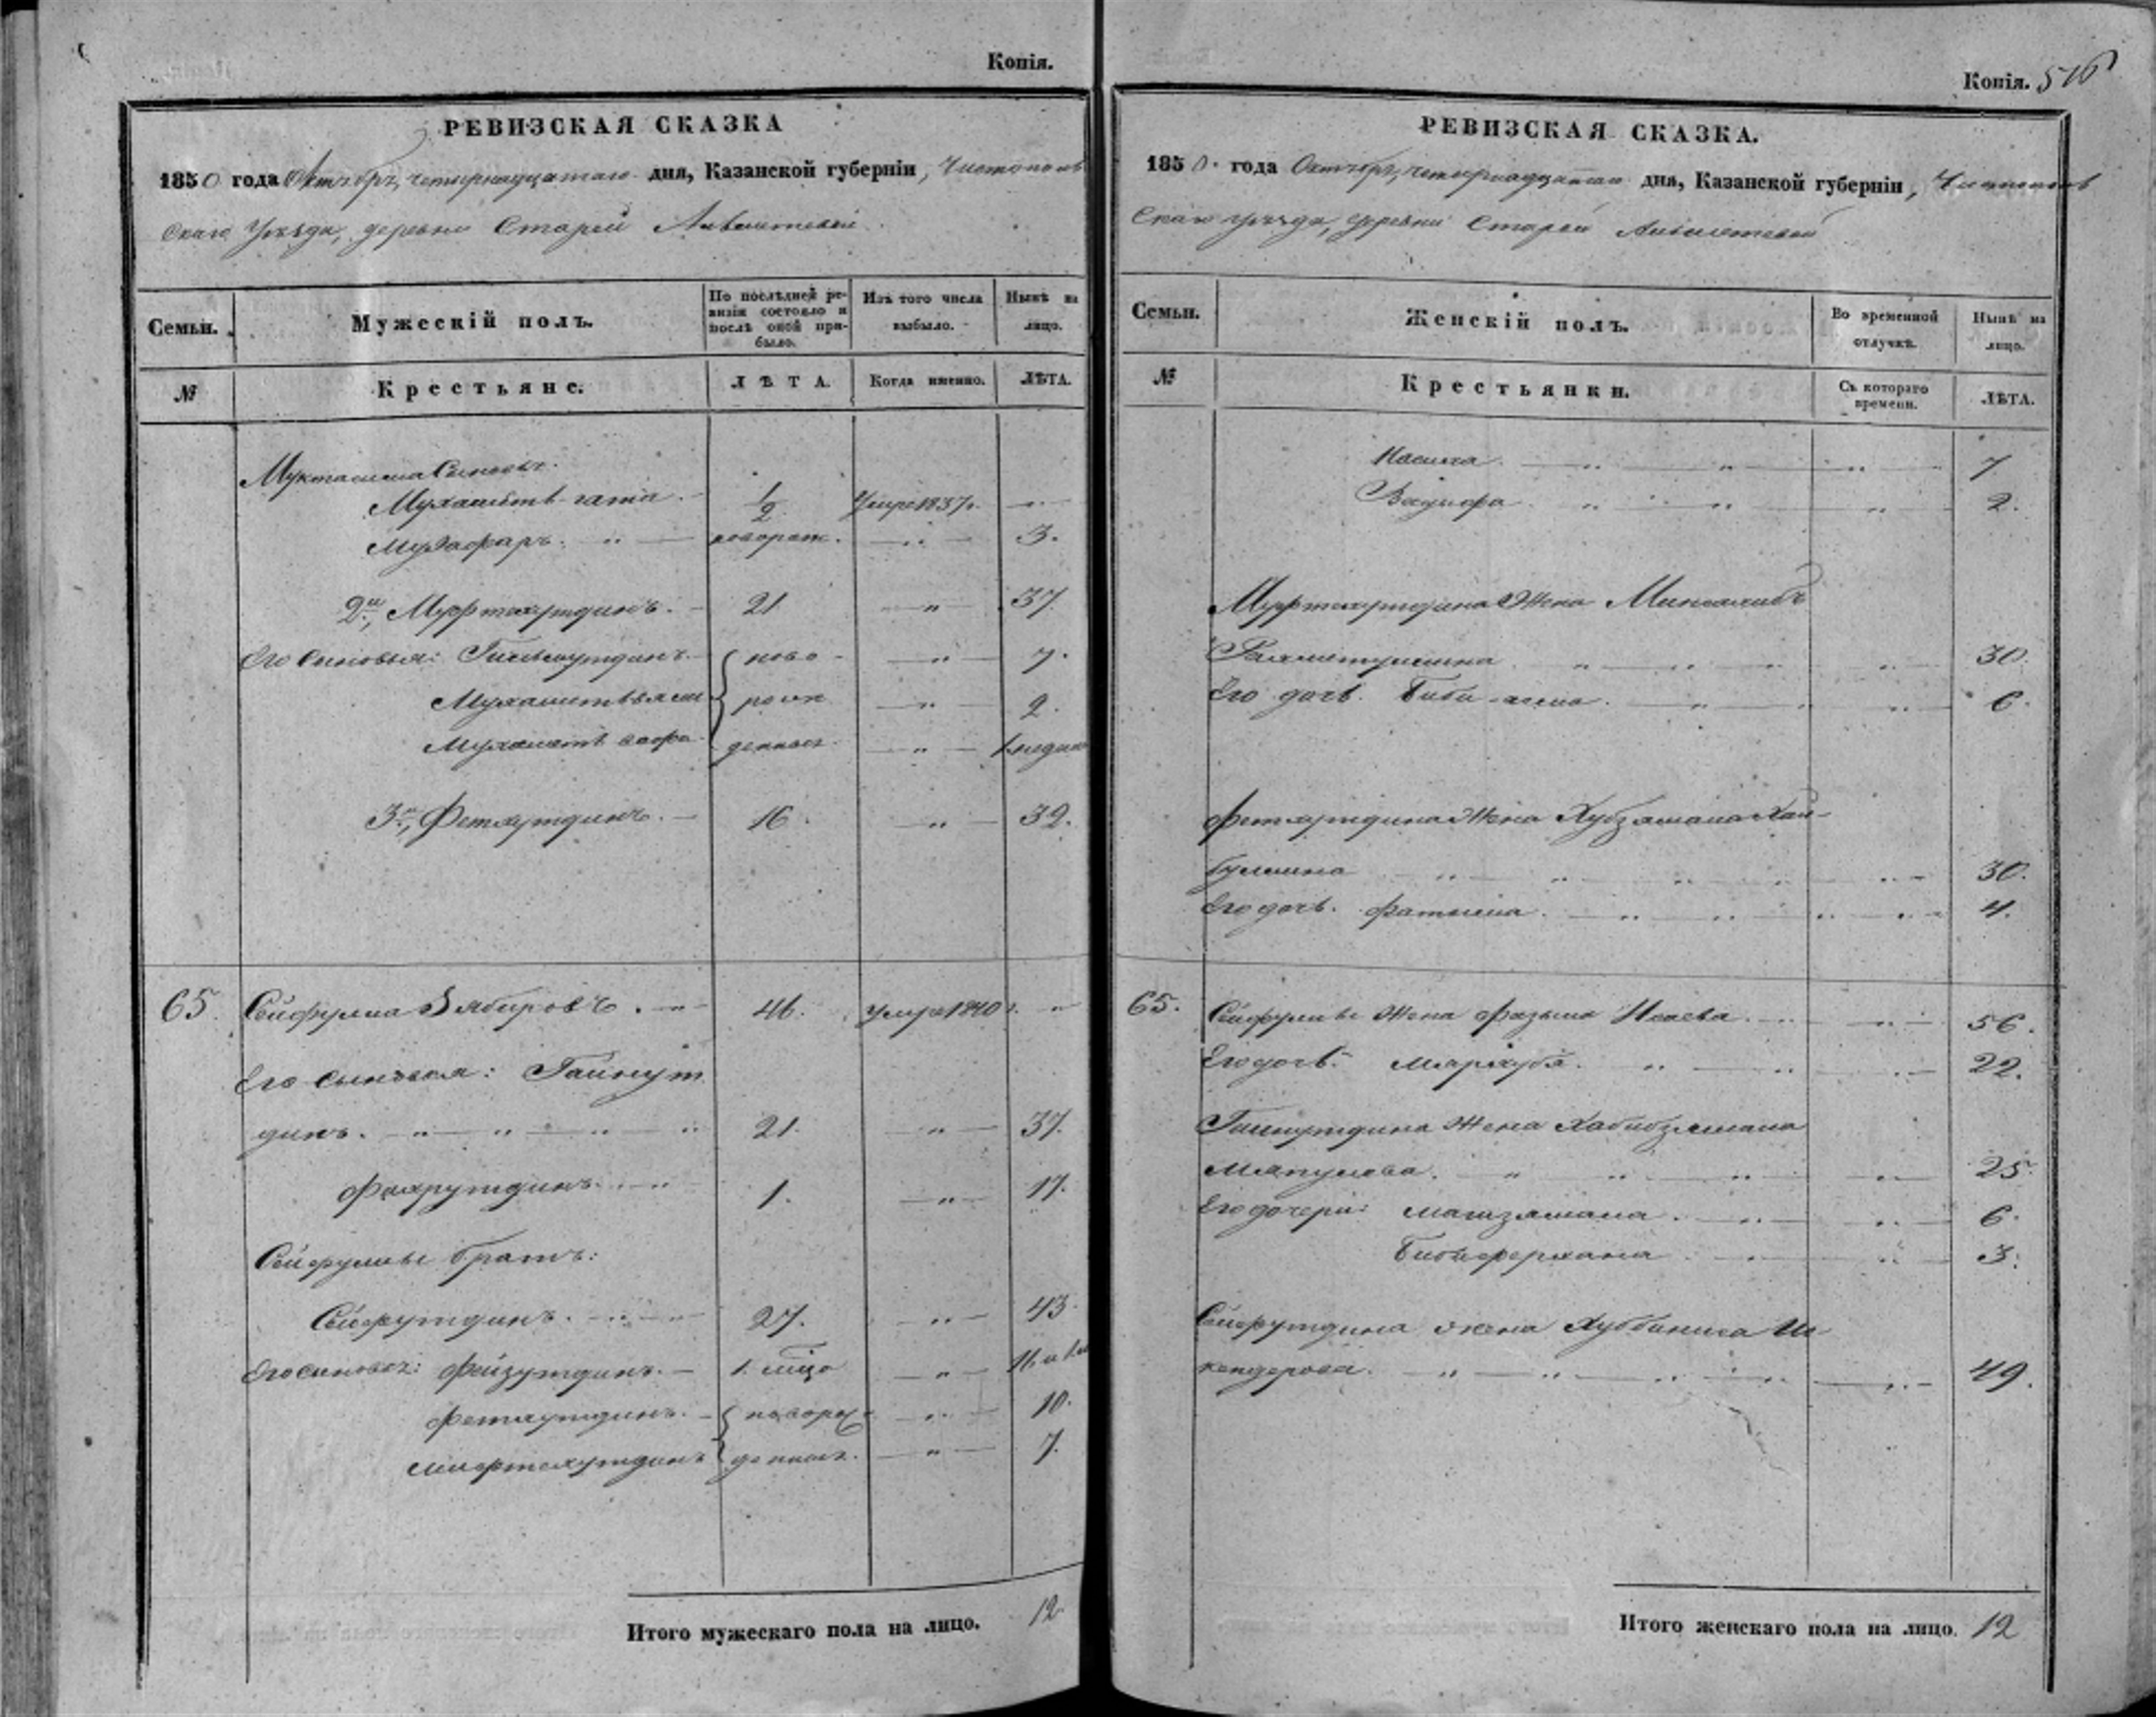 Копія.
РЕВИЗСКАЯ СКАЗКА
1850 года Октября, четырнадцатаго дня, Казанской губерніи, Чистополь
скаго Уѣзда, деревни Старой
Семьи.
Мужескій полъ.
По послѣдней ре-
визіи состояло и
послѣ оной при-
было.
Изъ того числа
выбыло.
Нынѣ на
лицо.
№
Крестьяне.
ЛѢТА.
Когда именно.
ЛѢТА.
Сыновья:
Мухаметь-гата 1/2 Умре 1837 г.
Музафаръ новорож. 3.
2й, Муфтахутдинъ. 21 37.
Его сыновья: ново- 7.
рож 2.
Мухаметь сафа денные 1 недели
3й, Фетхутдинъ. 16. 32.
65. Сейфулла Зябировъ. 46. умре 1840 г.
Его сыновья: Гайнут
динъ. 21. 37.
Фахрутдинъ 1. 17.
Сейфуллы братъ:
Сейфутдинъ. 27. 43.
Его сыновья: Фейзутдинъ. 16
Фетхутдинъ. новорож 10.
Мифтахутдинъ денные. 7.
Итого мужескаго пола на лицо. 12.
Копія. 516
РЕВИЗСКАЯ СКАЗКА.
1850. года Октября, четырнадцатаго дня, Казанской губерніи, Чистополь
скаго уѣзда, деревни Старой
Семьи.
Женскій полъ.
Во временной
отлучкѣ.
Нынѣ на
лицо.
№
Крестьянки.
Съ котораго
времени.
ЛѢТА.
7
2.
Муфтахутдина Жена
Рахметуллина 30.
Его дочь. Биби 6.
Фетхутдина Жена Хубзямала Хай-
буллина 30.
Его дочь. Фатыма. 4.
65. Сейфуллы Жена Фазыла Исаева. 56.
Его дочь. Мярхуба. 22.
Гайнутдина Жена Хабибзямала
25.
Его дочери: 6.
Бибиферхана 3.
Сейфутдина жена Хуббиниса Ис
кендерова. 49.
Итого женскаго пола на лицо. 12